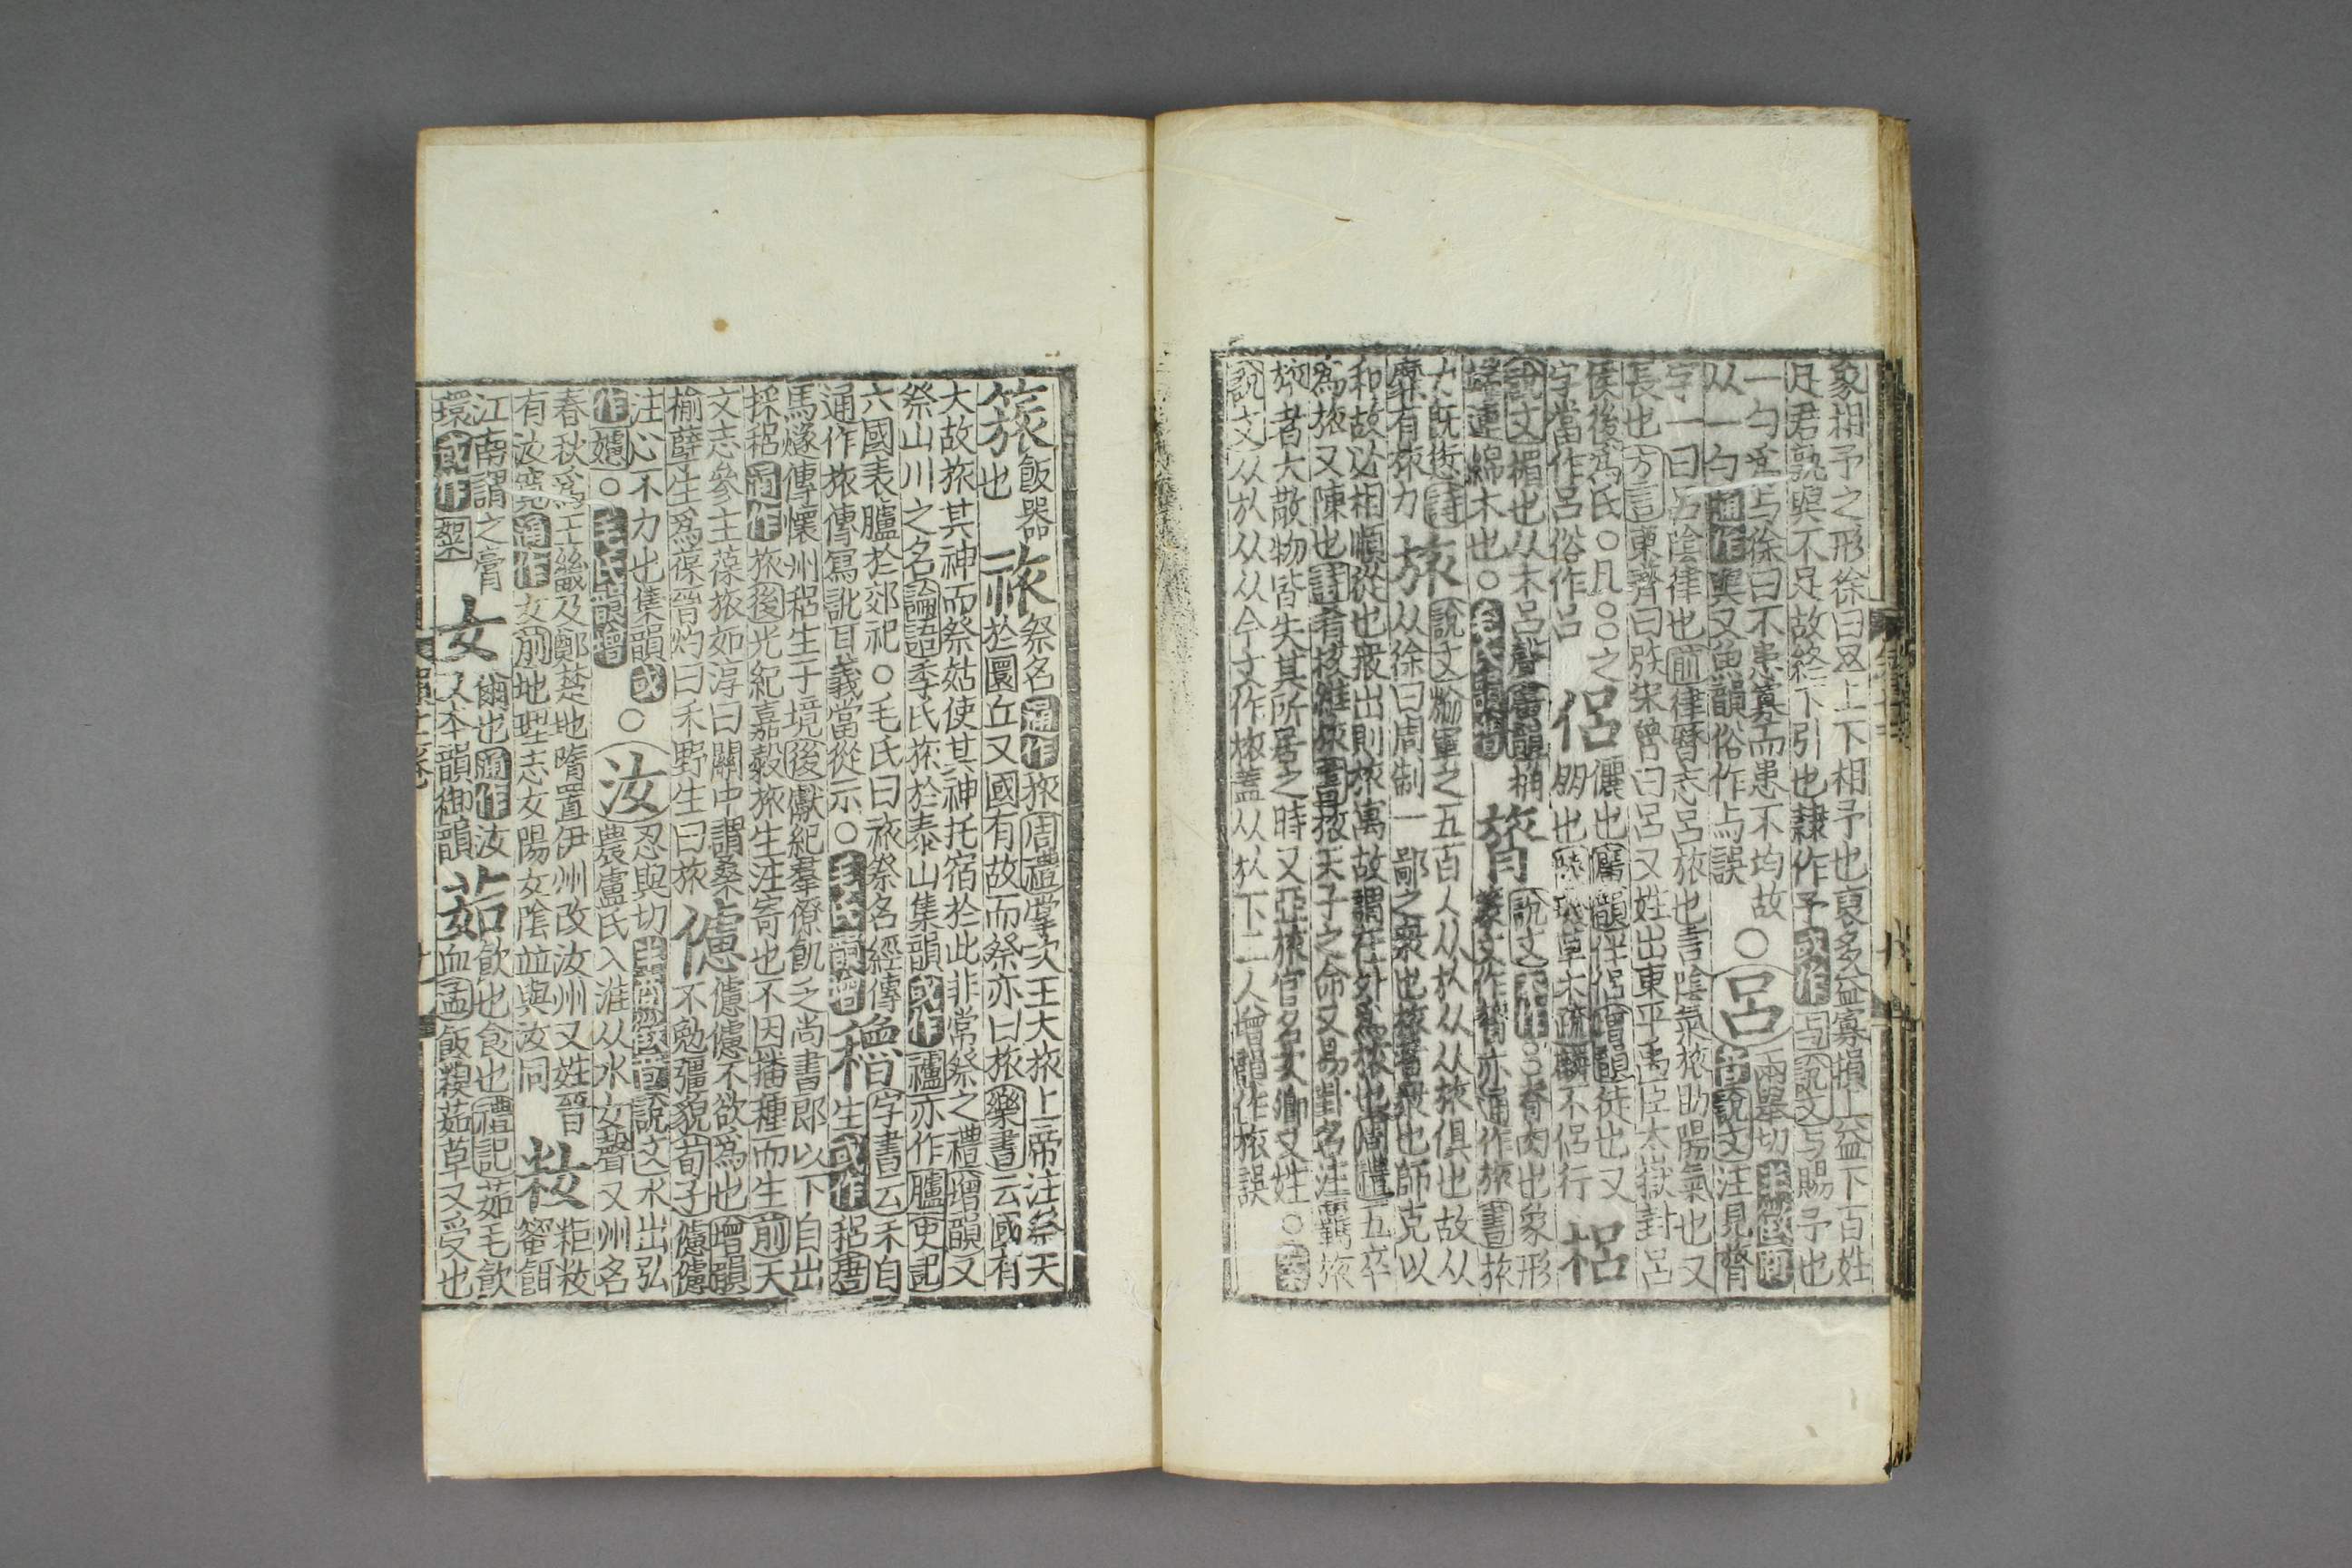 象相予之形徐曰㕕上下相予也裒多益寡損上益下百姓
足君孰與不足故終下引也隸作予或作与說文与賜予也
一勺爲与徐曰不患寡而患不均故
从一勺通作與又魚韻俗作与誤
○呂兩舉切
音說文注見膂
字一曰呂陰律也前律曆志呂旅也言陰氣旅助陽氣也又
長也方言東齊曰 宋魯曰呂又姓出東平禹臣太嶽封呂
侯後爲氏○凡○○之
字當作呂俗作吕
侶儷也廣韻伴侶增韻徒也又
朋也 草木疏麟不侶行
梠
說文楣也从木呂聲廣韻桷
端連綿木也○毛氏韻增
膂說文本作呂脊肉也象形
篆文作膂亦通作旅書旅
力旣愆詩
靡有旅力
旅說文軍之五百人从㫃从从旅俱也故从
从徐曰周制一鄙之衆也旅者衆也師克以
和故必相順從也衆出則旅寓故謂在外爲旅也周禮五卒
爲旅又陳也詩肴核維旅書旅天子之命又易卦名注羈旅
旅者大散物皆失其所居之時又亞旅官名次卿又姓○案
說文从㫃从从今文作旅蓋从㫃下二人增韻作旅誤
䉭飯器
也
祣祭名通作旅周禮掌次王大旅上帝注祭天
於圜丘又國有故而祭亦曰旅樂書云國有
大故旅其神而祭姑使其神托宿於此非常祭之禮增韻又
祭山川之名論語季氏旅於泰山集韻或作䃔亦作臚史記
六國表臚於郊祀○毛氏曰祣祭名經傳
通作旅傳寫訛耳義當從示○毛氏韻增
穭字書云禾自
生或作稆唐
馬燧傳懷州稆生于境後獻紀羣僚飢乏尚書郎以下自出
採稆通作旅後光紀嘉穀旅生注寄也不因播種而生前天
文志參主葆旅如淳曰關中謂桑
榆蘖生爲葆晉灼曰禾野生曰旅
儢儢儢不欲爲也增韻
不勉彊貌荀子儢儢
注心不力也集韻或
作㦛○毛氏韻增
○汝忍與切
說文水出弘
農盧氏入淮从水女聲又州名
春秋爲王畿及鄭楚地隋置伊州改汝州又姓晉
有汝寬通作女前地理志女陽女陰並與汝同
籹粔籹
蜜餌
江南謂之膏
環或作䋈
女爾也通作汝
又本韻御韻
茹飮也食也禮記茹毛飮
血孟飯糗茹草又受也